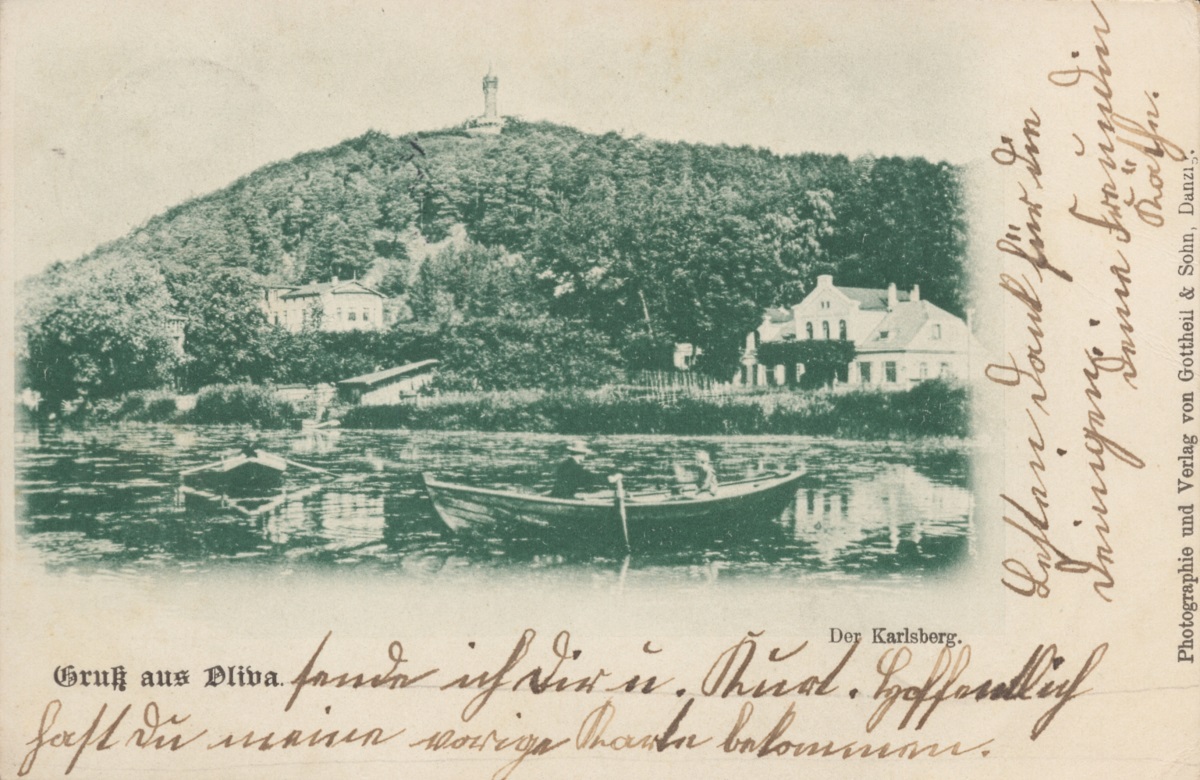 Der Karlsberg.
Gruß aus Oliva. sende ich Dir u. Kurt. Hoffentlich
hast Du meine vorige Karte bekommen.
Besten Dank für den
Deinigen! Deine Freundin
Käthe.
Photographie und Verlag von Gottheil & Sohn, Danzig.